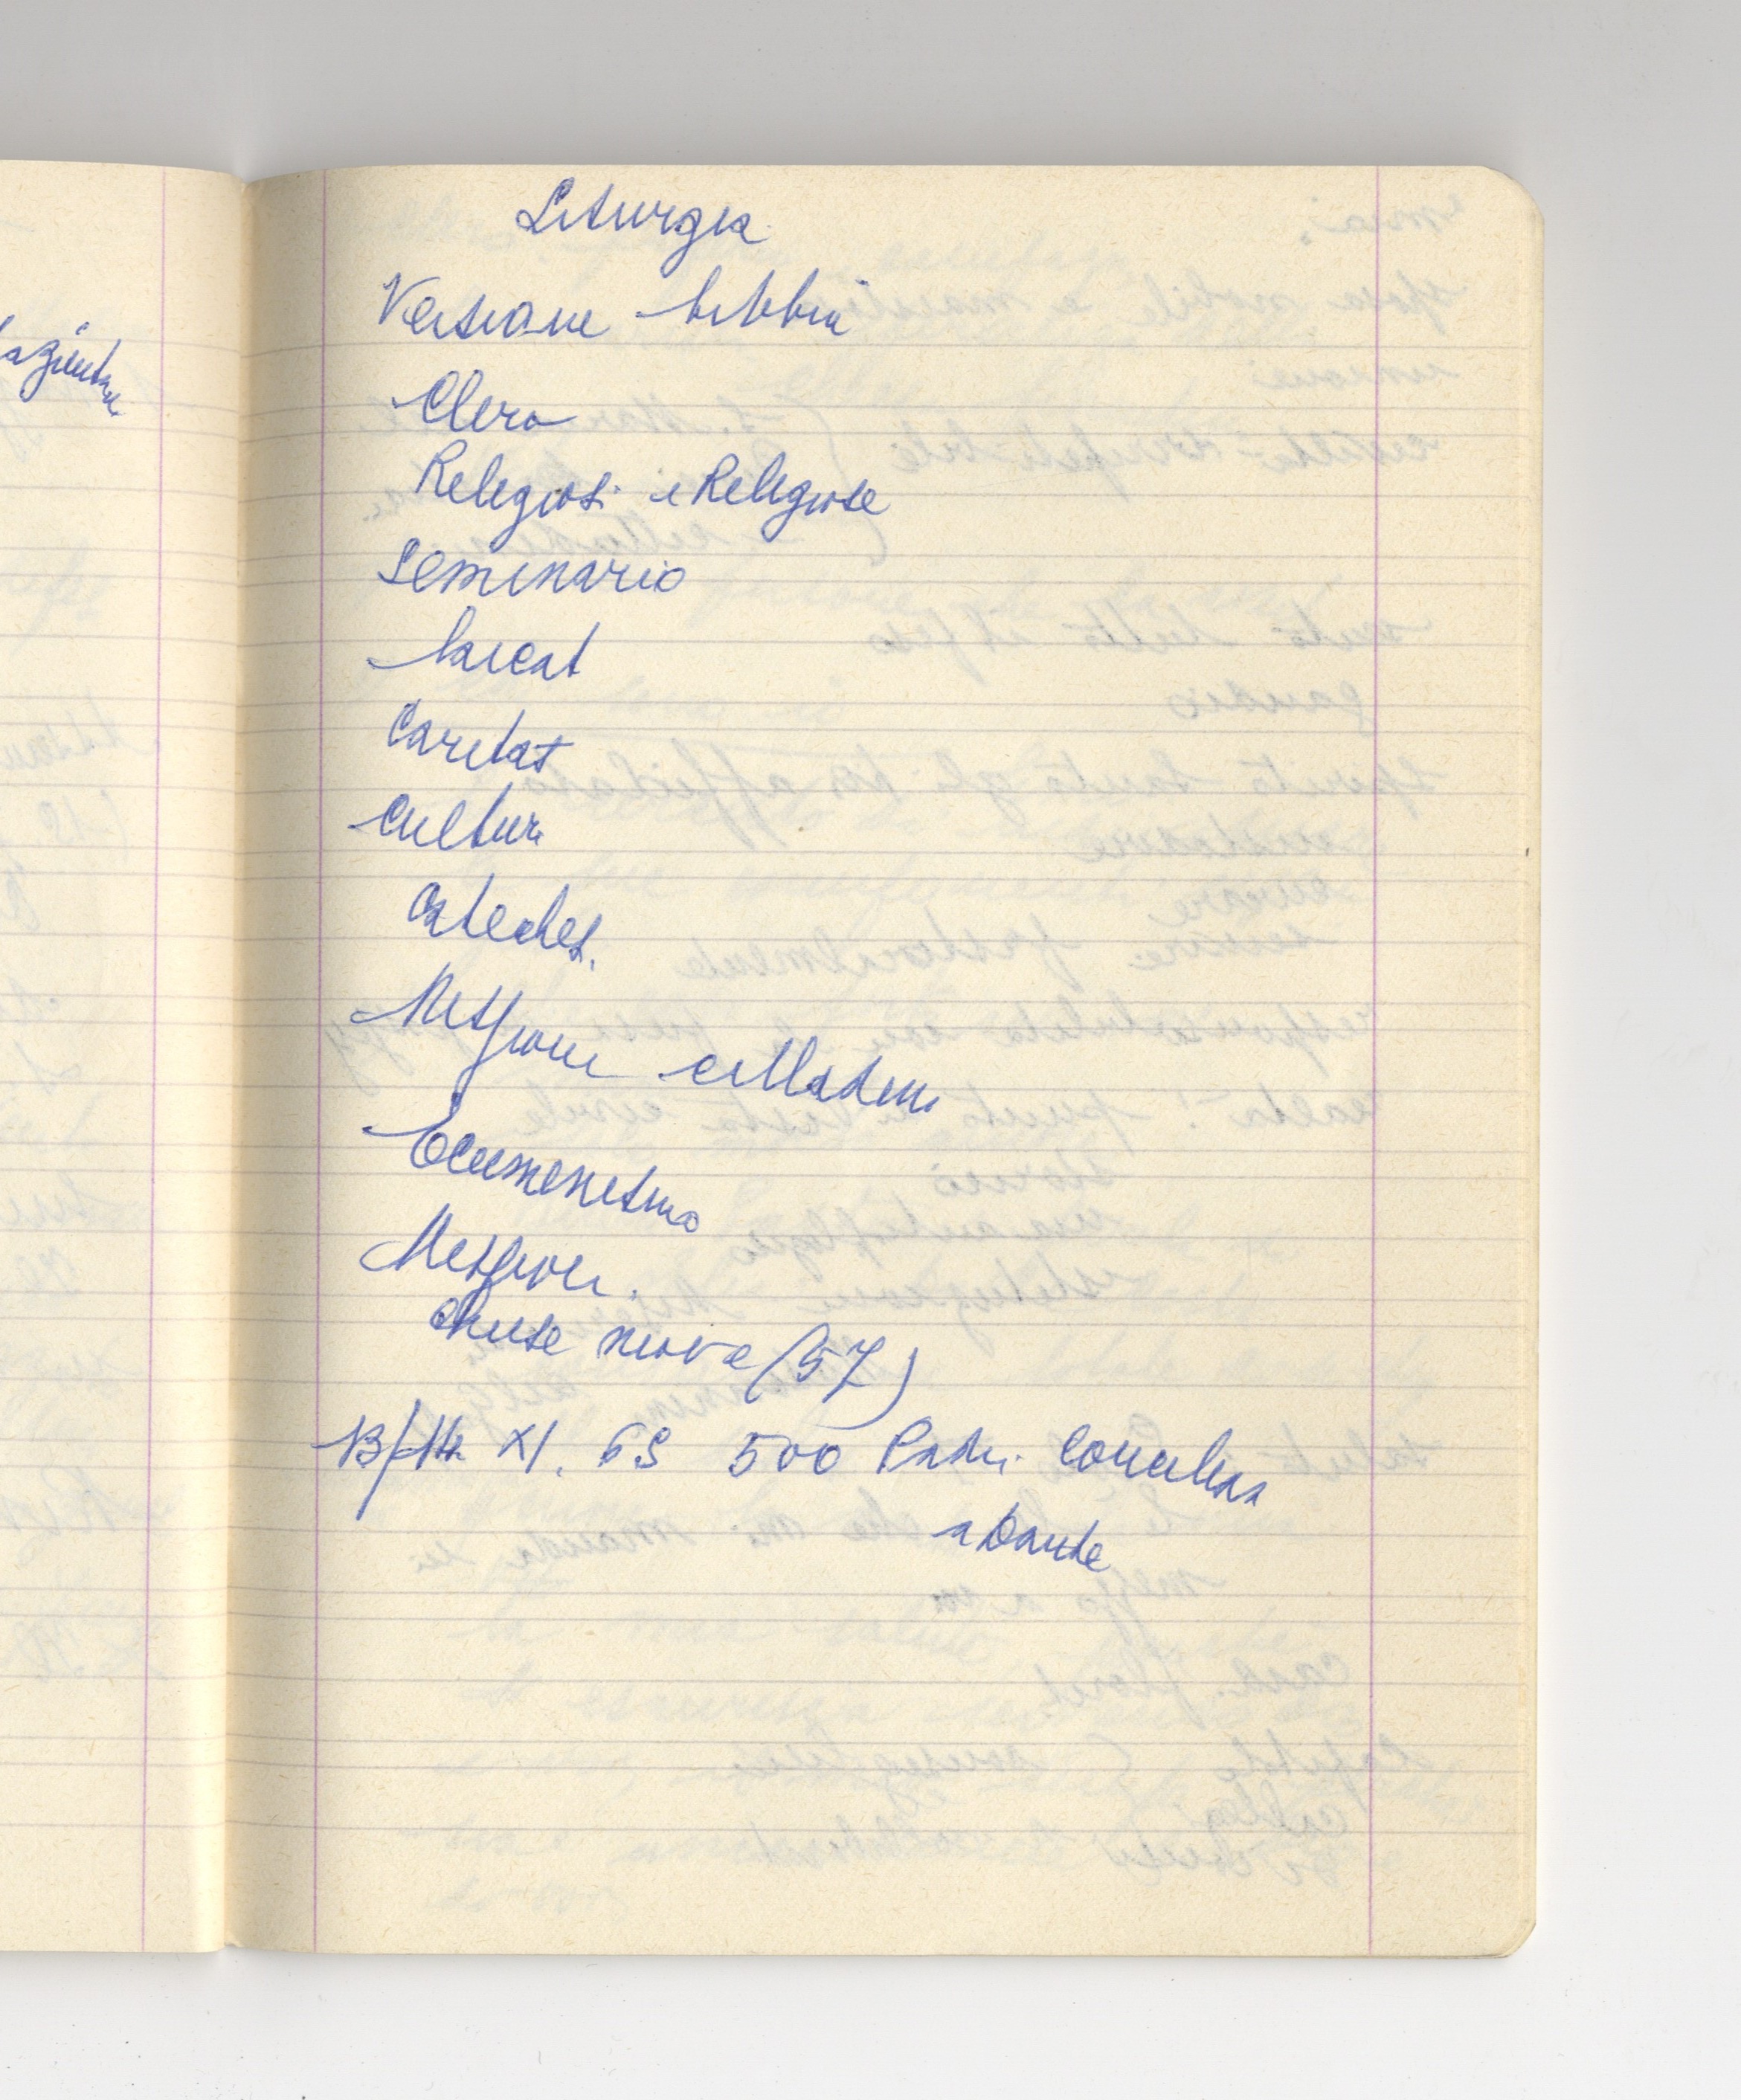 Liturgia
Versione bibbia
Clero
Religiosi e Religiose
Seminario
laicat
Caritat
Cultur
Cateches.
Missione cittadin
Ecumenismo
Missioni.
Chiese nuove (57)
XI. 65 500 Padri Conciliari
a Dante